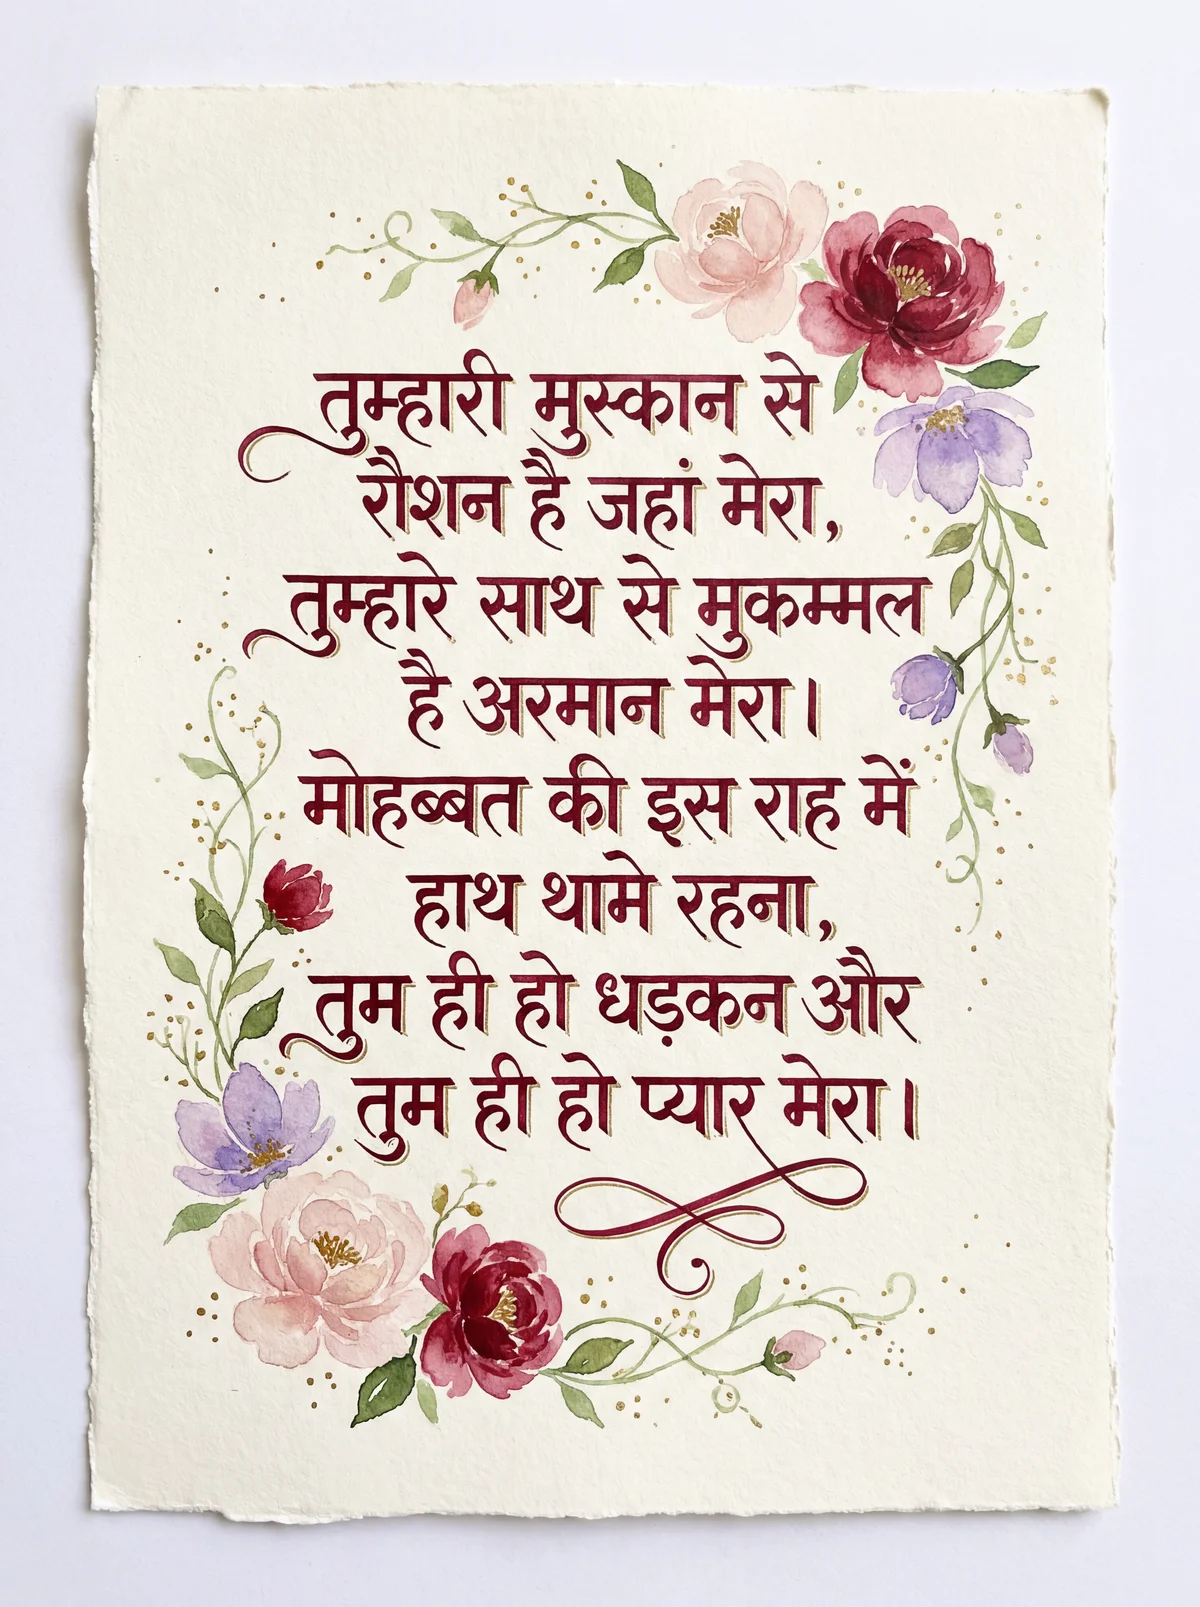 तुम्हारी मुस्कान से
रौशन है जहां मेरा,
तुम्हारे साथ से मुकम्मल
है अरमान मेरा।
मोहब्बत की इस राह में
हाथ थामे रहना,
तुम ही हो धड़कन और
तुम ही हो प्यार मेरा।